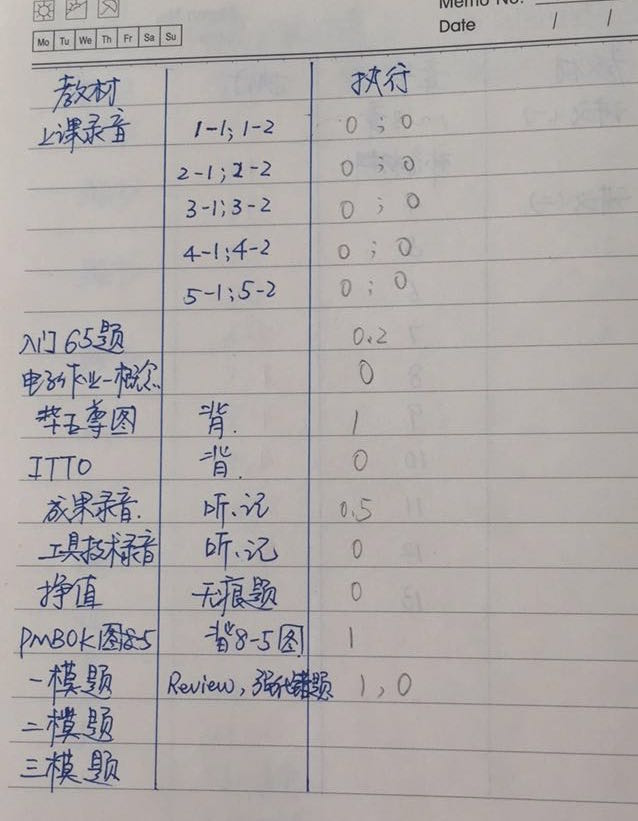 Memo No.
Date / /
Mo Tu We Th Fr Sa Su
教材 执行
上课录音 1-1; 1-2 0 ; 0
2-1; 2-2 0 ; 0
3-1; 3-2 0 ; 0
4-1; 4-2 0 ; 0
5-1; 5-2 0 ; 0
入门65题 0.2
电子作业-概念 0
华五尊图 背. 1
ITTO 背. 0
成果录音. 听、记 0.5
工具技术录音 听、记 0
挣值 无痕题 0
PMBOK图8-5 背8-5图 1
一模题 Review, 强化错题 1, 0
二模题
三模题